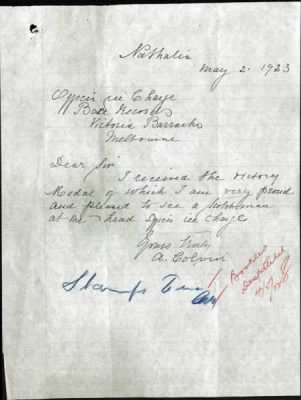 Nathalia
May 2. 1923
Officer in Charge
Base Records
Victoria Barracks
Melbourne
Dear Sir
I received the victory
Medal of which I am very proud
and pleased to see a
at the head Officer in charge
Yours truly
A. Colvin
Stamps
Booklets
Despatched